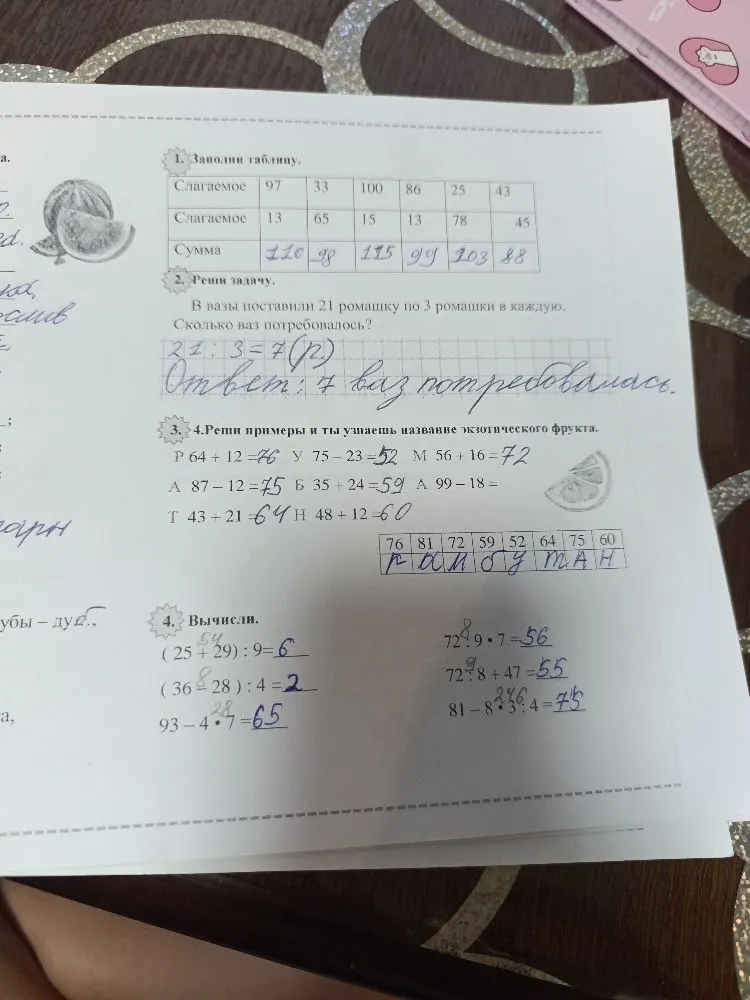 а.
1. Заполни таблицу.
Слагаемое 97 33 100 86 25 43
Слагаемое 13 65 15 13 78 45
Сумма 110 98 115 99 103 88
2. Реши задачу.
В вазы поставили 21 ромашку по 3 ромашки в каждую.
Сколько ваз потребовалось?
21 : 3 = 7 (р.)
Ответ: 7 ваз потребовалась.
3. 4.Реши примеры и ты узнаешь название экзотического фрукта.
Р 64 + 12 = 76 У 75 – 23 = 52 М 56 + 16 = 72
А 87 – 12 = 75 Б 35 + 24 = 59 А 99 – 18 =
Т 43 + 21 = 64 Н 48 + 12 = 60
76 81 72 59 52 64 75 60
Р а м б у т А Н
убы – дуб.,
4. Вычисли.
54
( 25 + 29) : 9= 6
8
( 36 – 28 ) : 4 = 2
28
93 – 4 • 7 = 65
8
72 : 9 • 7 = 56
9
72 : 8 + 47 = 55
24 6
81 – 8 • 3 : 4 = 75